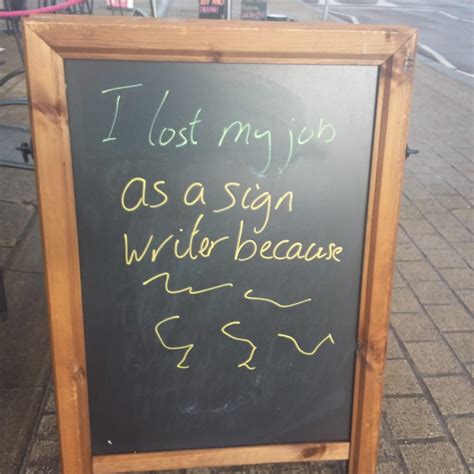 I lost my job
as a sign
writer because